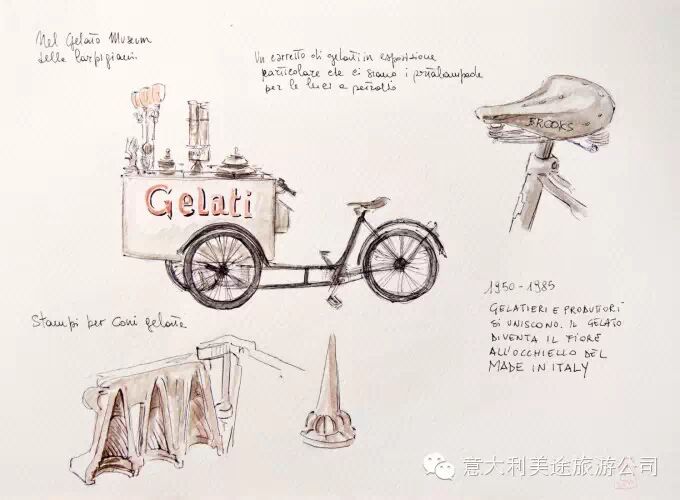 Nel Gelato Museum
della Carpigiani.
Un carretto di gelati in esposizione
particolare che ci siano i portalampade
per le luci a petrolio
BROOKS
Gelati
1950-1985
GELATIERI E PRODUTTORI
SI UNISCONO. IL GELATO
DIVENTA IL FIORE
ALL'OCCHIELLO DEL
MADE IN ITALY
Stampi per coni gelato
意大利美途旅游公司